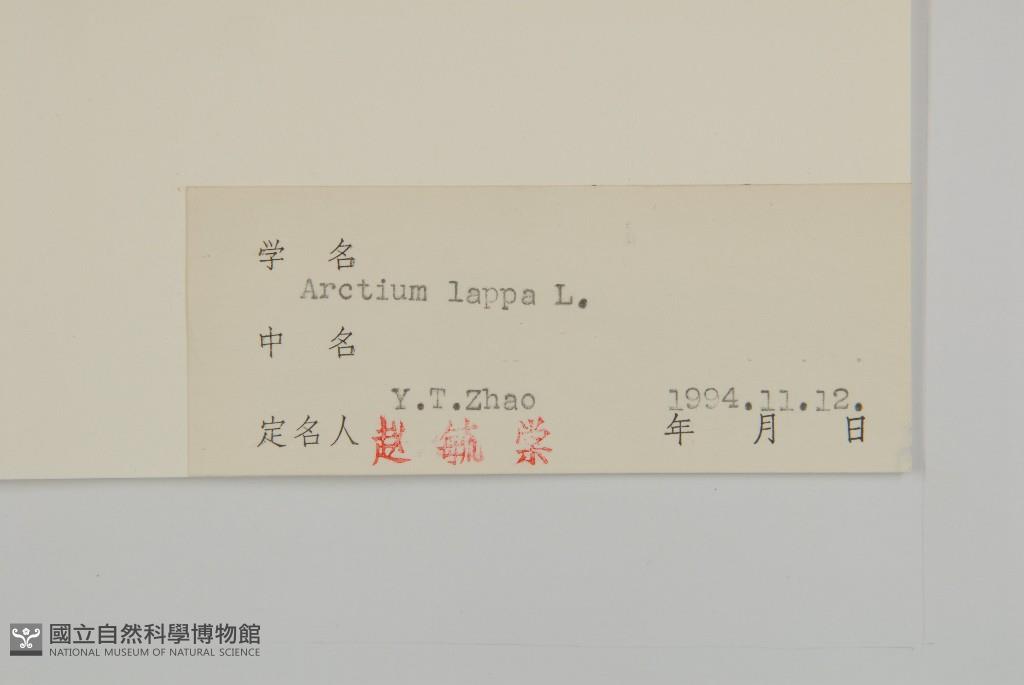 学 名
Arctium lappa L.
中 名
Y.T.Zhao 1994.11.12.
定名人 赵 毓 棠 年 月 日
國立自然科學博物館
NATIONAL MUSEUM OF NATURAL SCIENCE